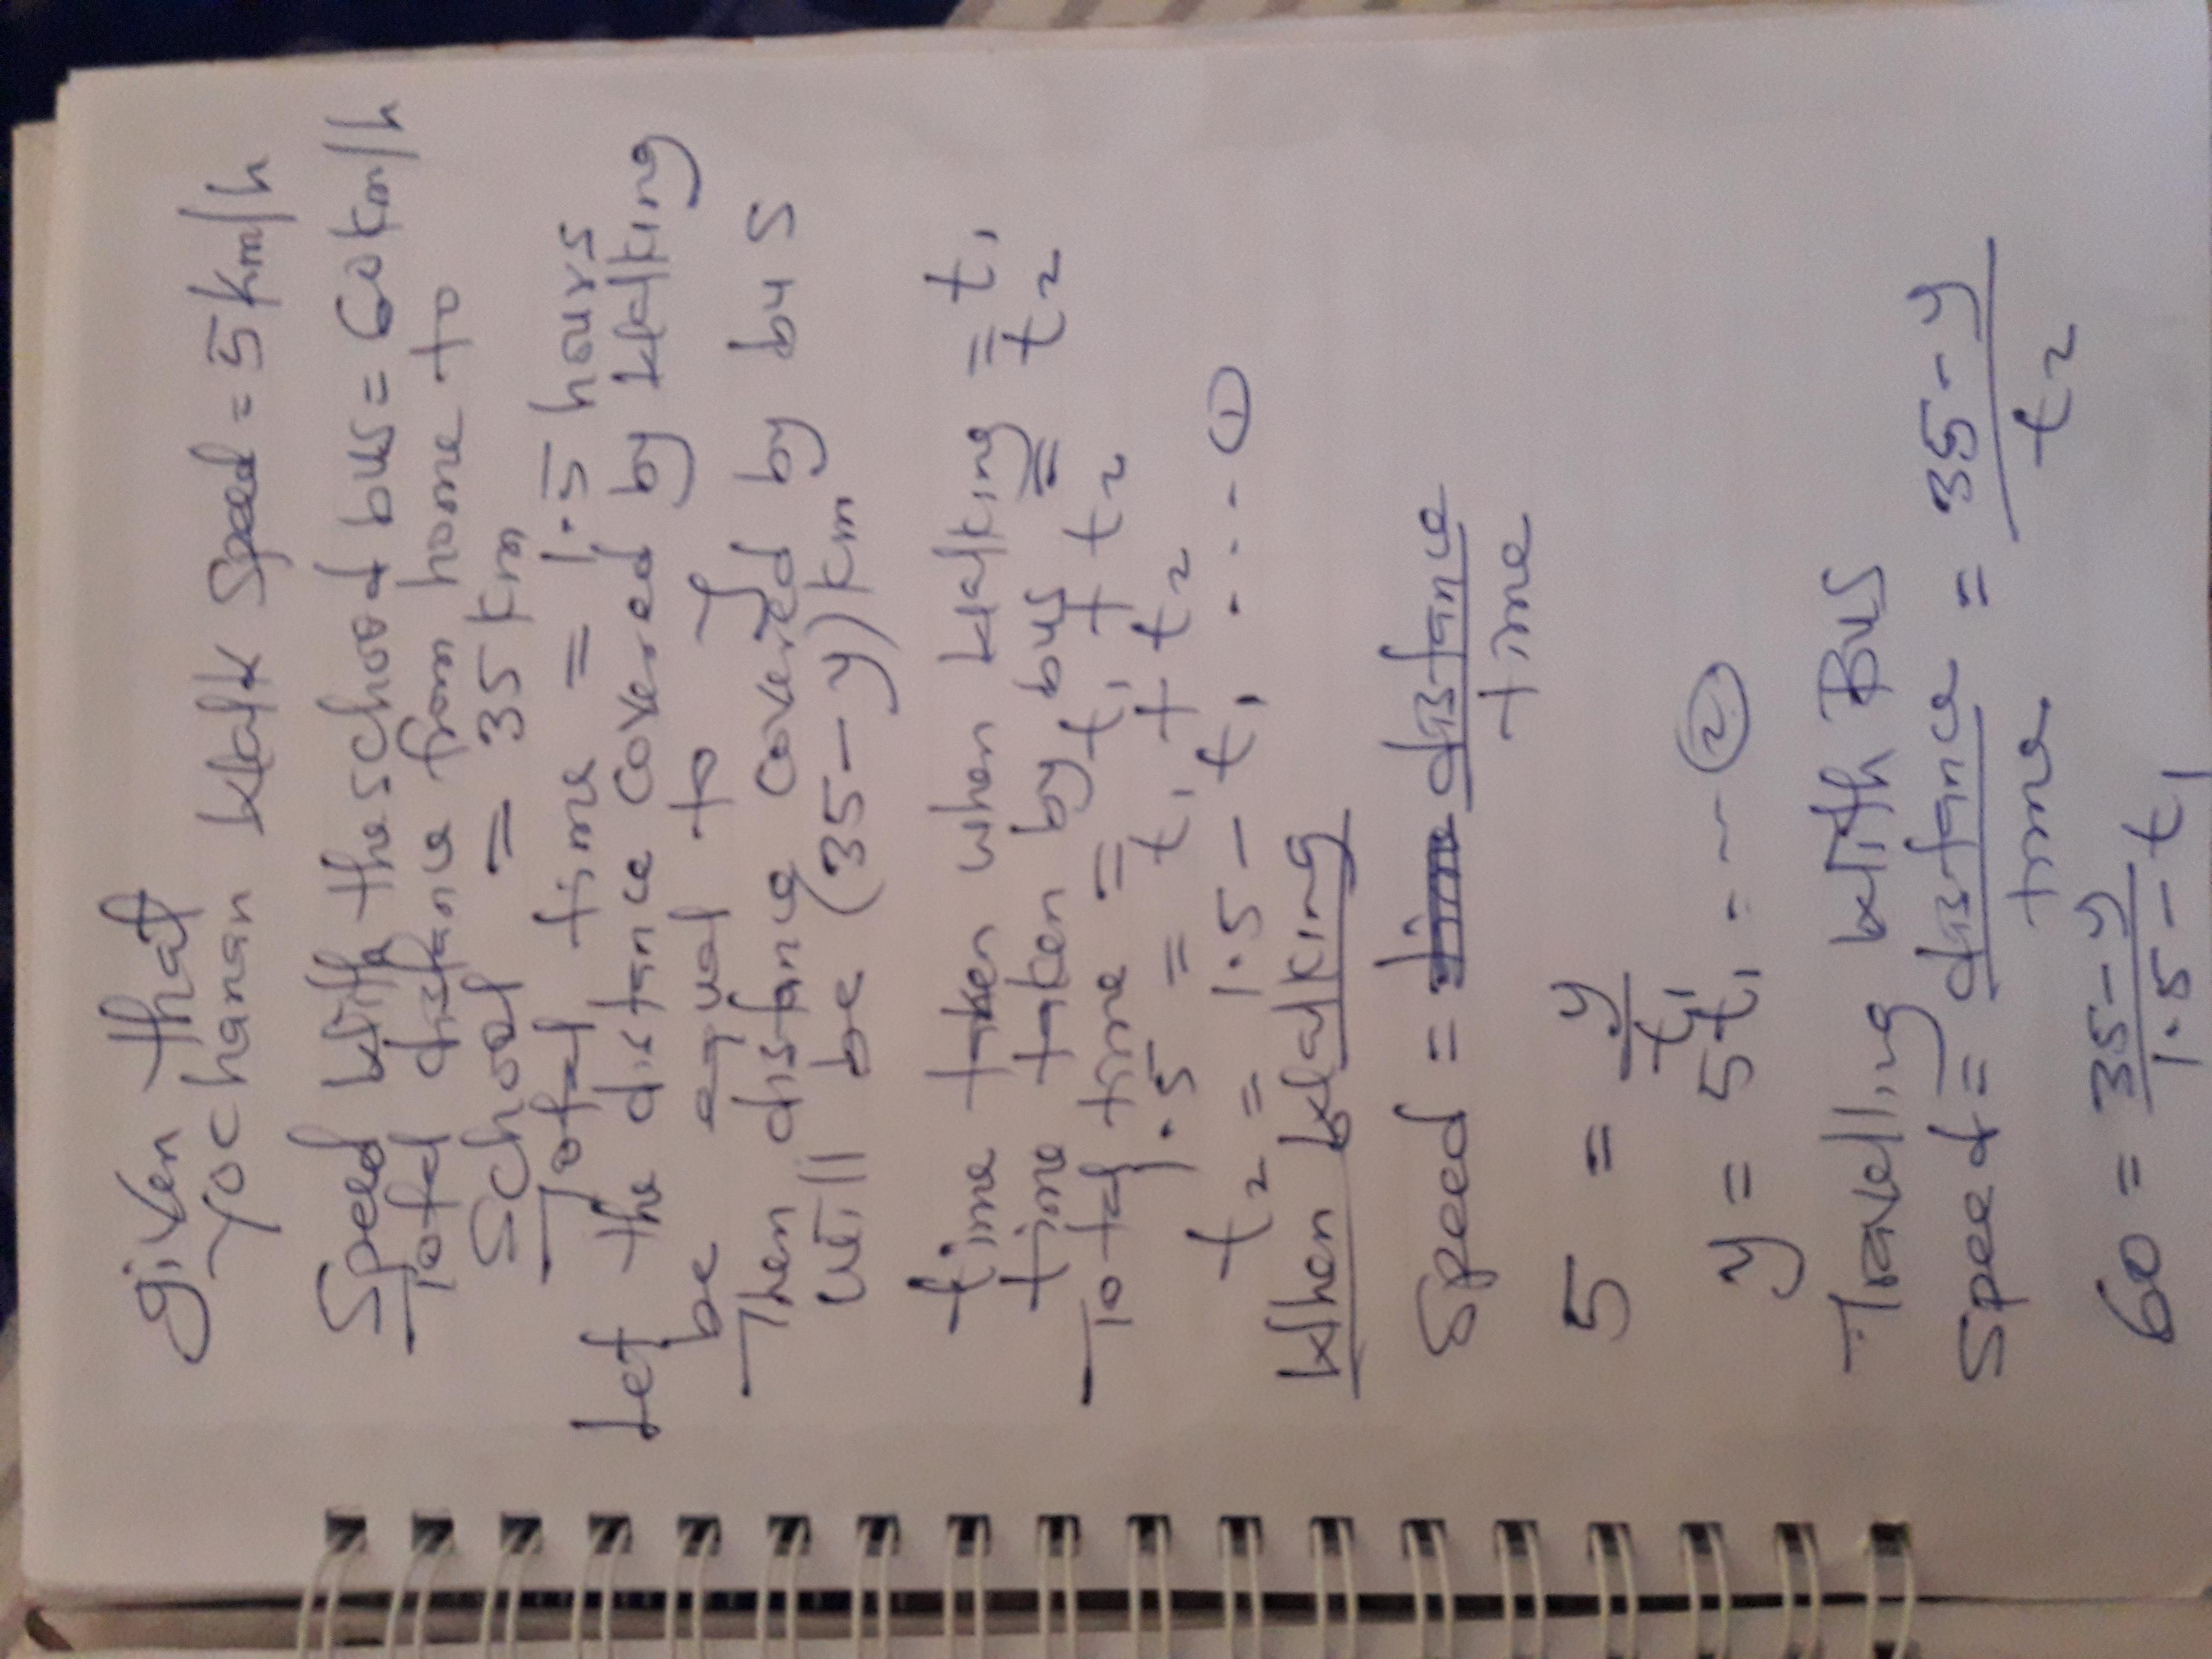 given that
Yochanan Walk Speed = 5 km/h
Speed with the school bus = 60 km/h
Total distance from home to
School = 35 km
Total time = 1.5 hours
Let the distance covered by walking
be equal to y
Then distance covered by bus
will be (35-y) km
time taken when walking = t₁
time taken by bus = t₂
Total time = t₁ + t₂
1.5 = t₁ + t₂
t₂ = 1.5 - t₁ .... ①
When walking
Speed = distance
time
5 = y/t₁
y = 5t₁ --- ②
Travelling with Bus
Speed = distance/time = 35-y/t₂
60 = 35-y/1.5-t₁